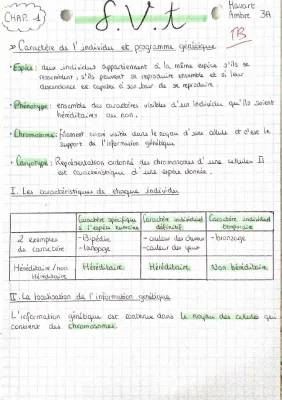 CHAP. 1
S.V.t
Havart
Ambre 3A
TB
» Caractère de l'individus et programme génétique
• Espèce : deux individus appartiennent à la même espèce s'ils se
ressemblent, s'ils peuvent se reproduire ensemble et si leur
descendance est capable à son tour de se reproduire.
• Phénotype : ensemble des caractères visibles d'un individu qu'ils soient
héréditaires ou non.
• Chromosomes : filament coloré visible dans le noyau d'une cellule et c'est le
support de l'information génétique
• Caryotype : Représentation ordonné des chromosomes d'une cellules Il
est caractéristique d'une espèce donnée.
I. Les caractéristiques de chaque individu
Caractère spécifique à l'espèce humaine
Caractère individuel définitif
Caractère individuel temporaire
2 exemples de caractère
- Bipédie
- langage
- couleur des cheveux
- couleur des yeux
- bronzage
Héréditaire / non Héréditaire
Héréditaire
Héréditaire
Non héréditaire
II. La localisation de l'information génétique
L'information génétique est contenue dans le noyau des cellules qui
contient des chromosomes.